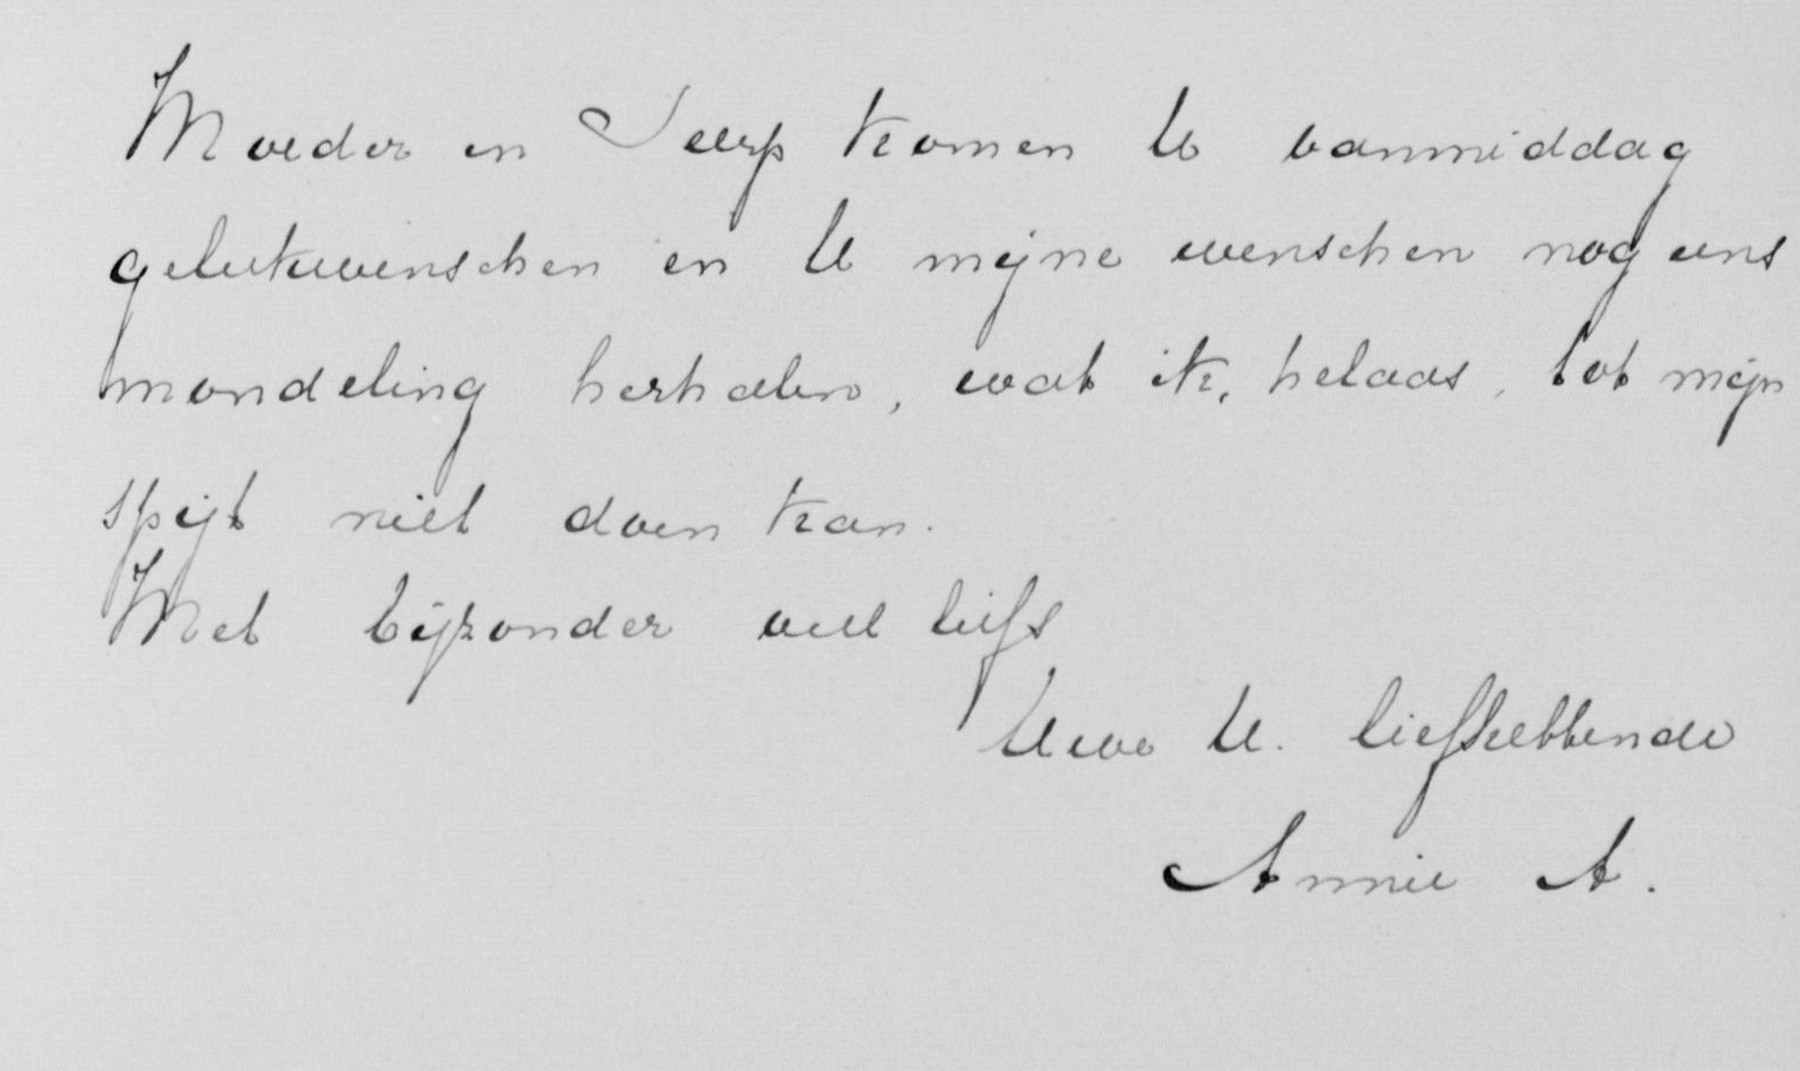 Moeder en Seerp komen U vanmiddag
gelukwenschen en U mijne wenschen nog eens
mondeling herhalen, wat ik, helaas, tot mijn
spijt niet doen kan.
Met bijzonder veel liefs
Uwe U. liefhebbende
Annie A.